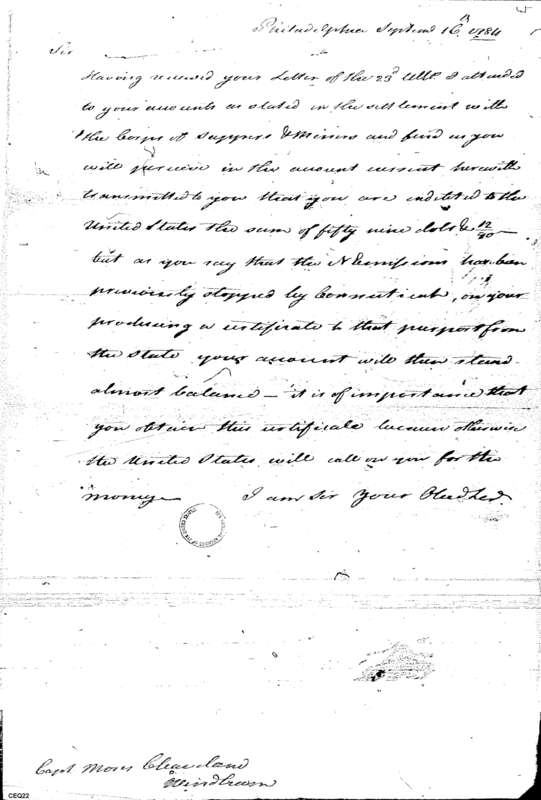 Philadelphia Septemr 16th 1784
Sir
Having received your Letter of the 23d Ulto. I attended
to your accounts as stated in the settlement with
the Corps of Sappers & Miners and find as you
will perceive in the account current herewith
transmitted to you that you are indebted to the
United States the sum of fifty nine dols & 12/90 —
but as you say that the N Emissions has been
previously stopped by Connecticut, on your
producing a certificate to that purport from
the state your account will then stand
almost balanced — it is of importance that
you obtain this certificate because otherwise
the United States will call on you for the
money — I am Sir Your Obed
Capt Moses Cleaveland
Windham
CEQ22